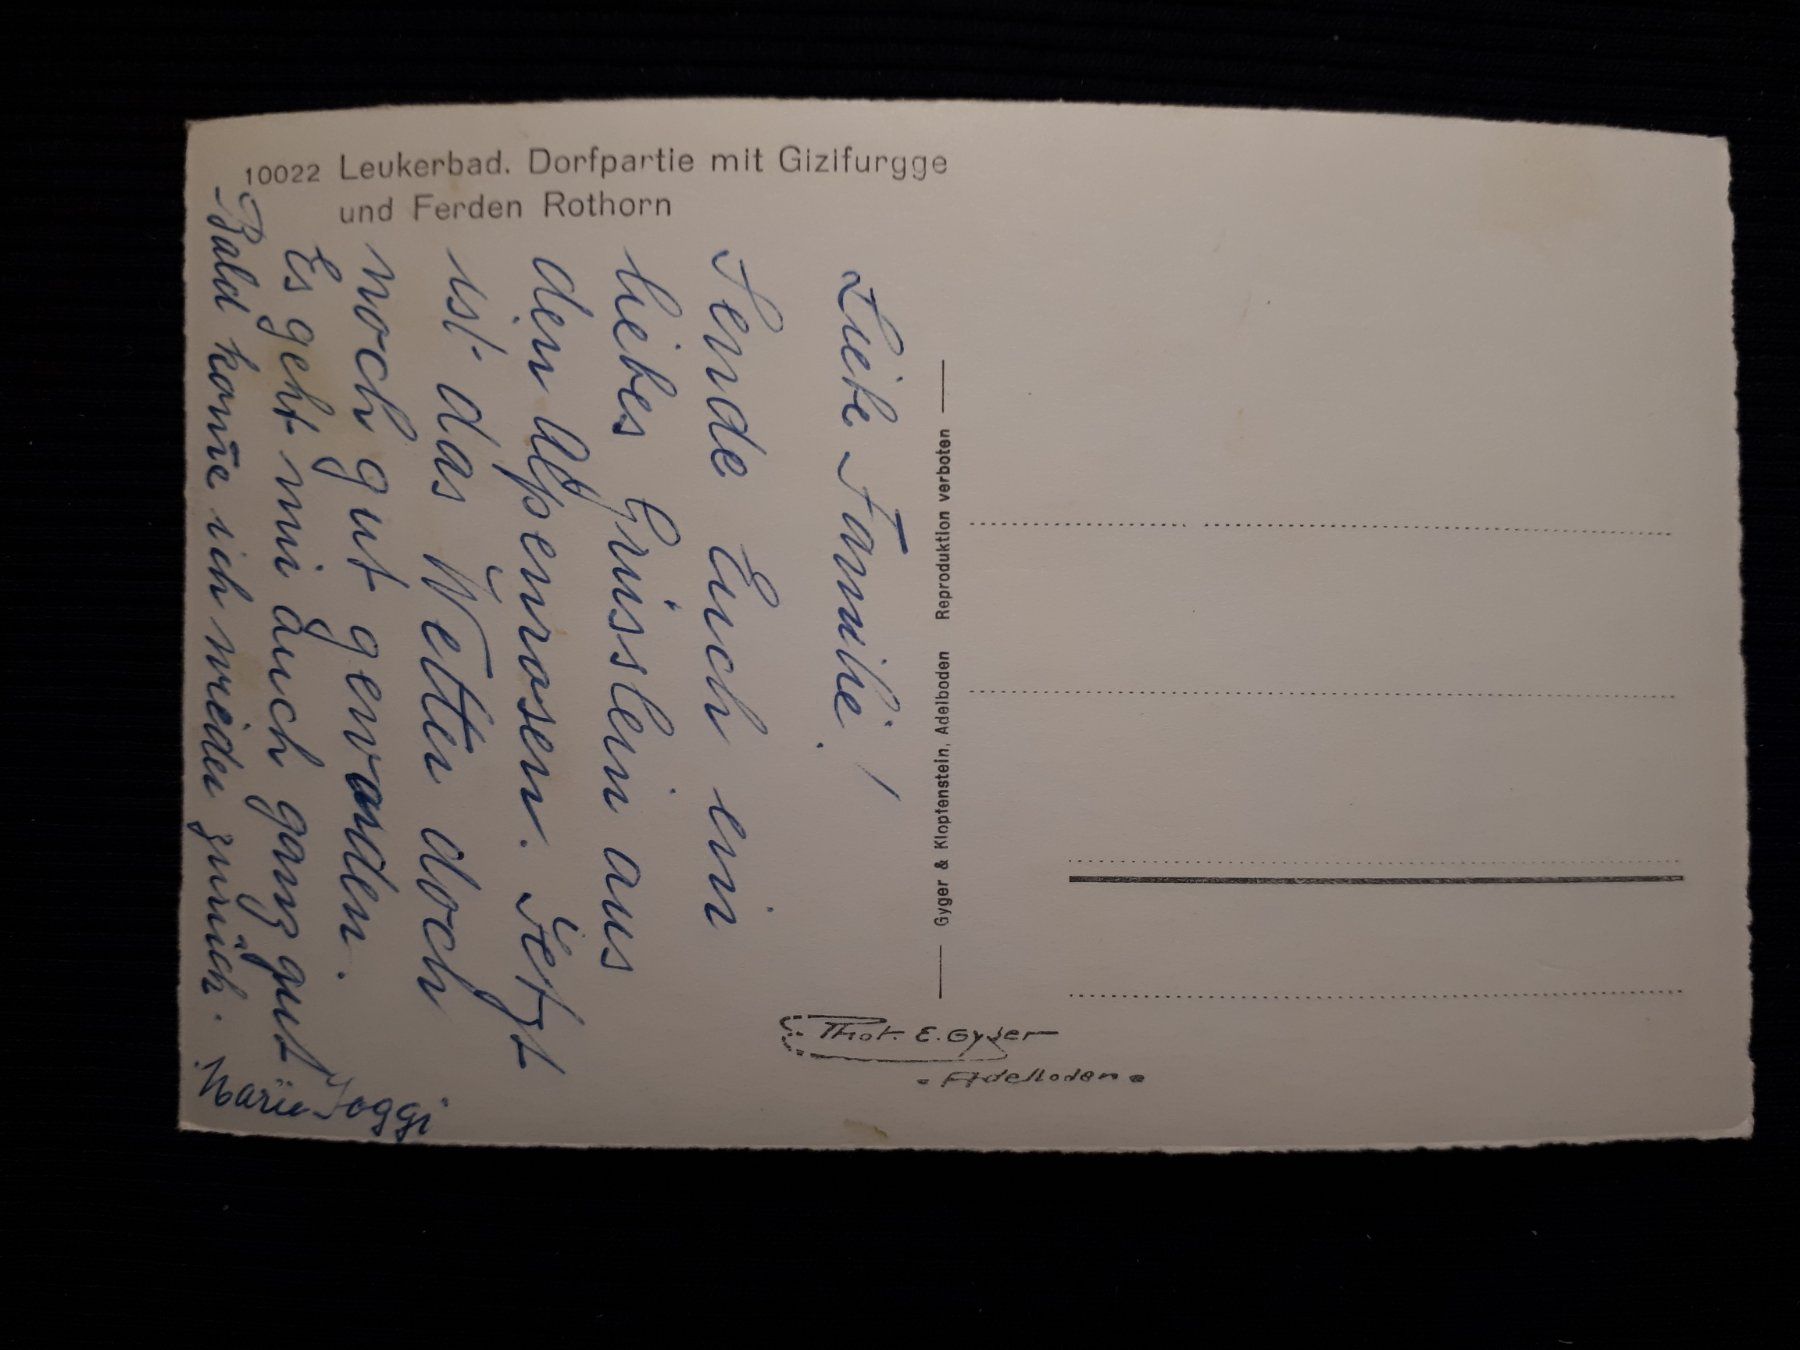 10022 Leukerbad. Dorfpartie mit Gizifurgge
und Ferden Rothorn
Liebe Familie!
Sende Euch ein
liebes Grüsslein aus
den Alpenrosen. Jetzt
ist das Wetter doch
noch gut geworden.
Es geht mir auch ganz gut
Bald kom̅e ich wieder zurück.
Marie Joggi
Gyger & Klopfenstein, Adelboden Reproduktion verboten
Phot. E. Gyger
Adelboden